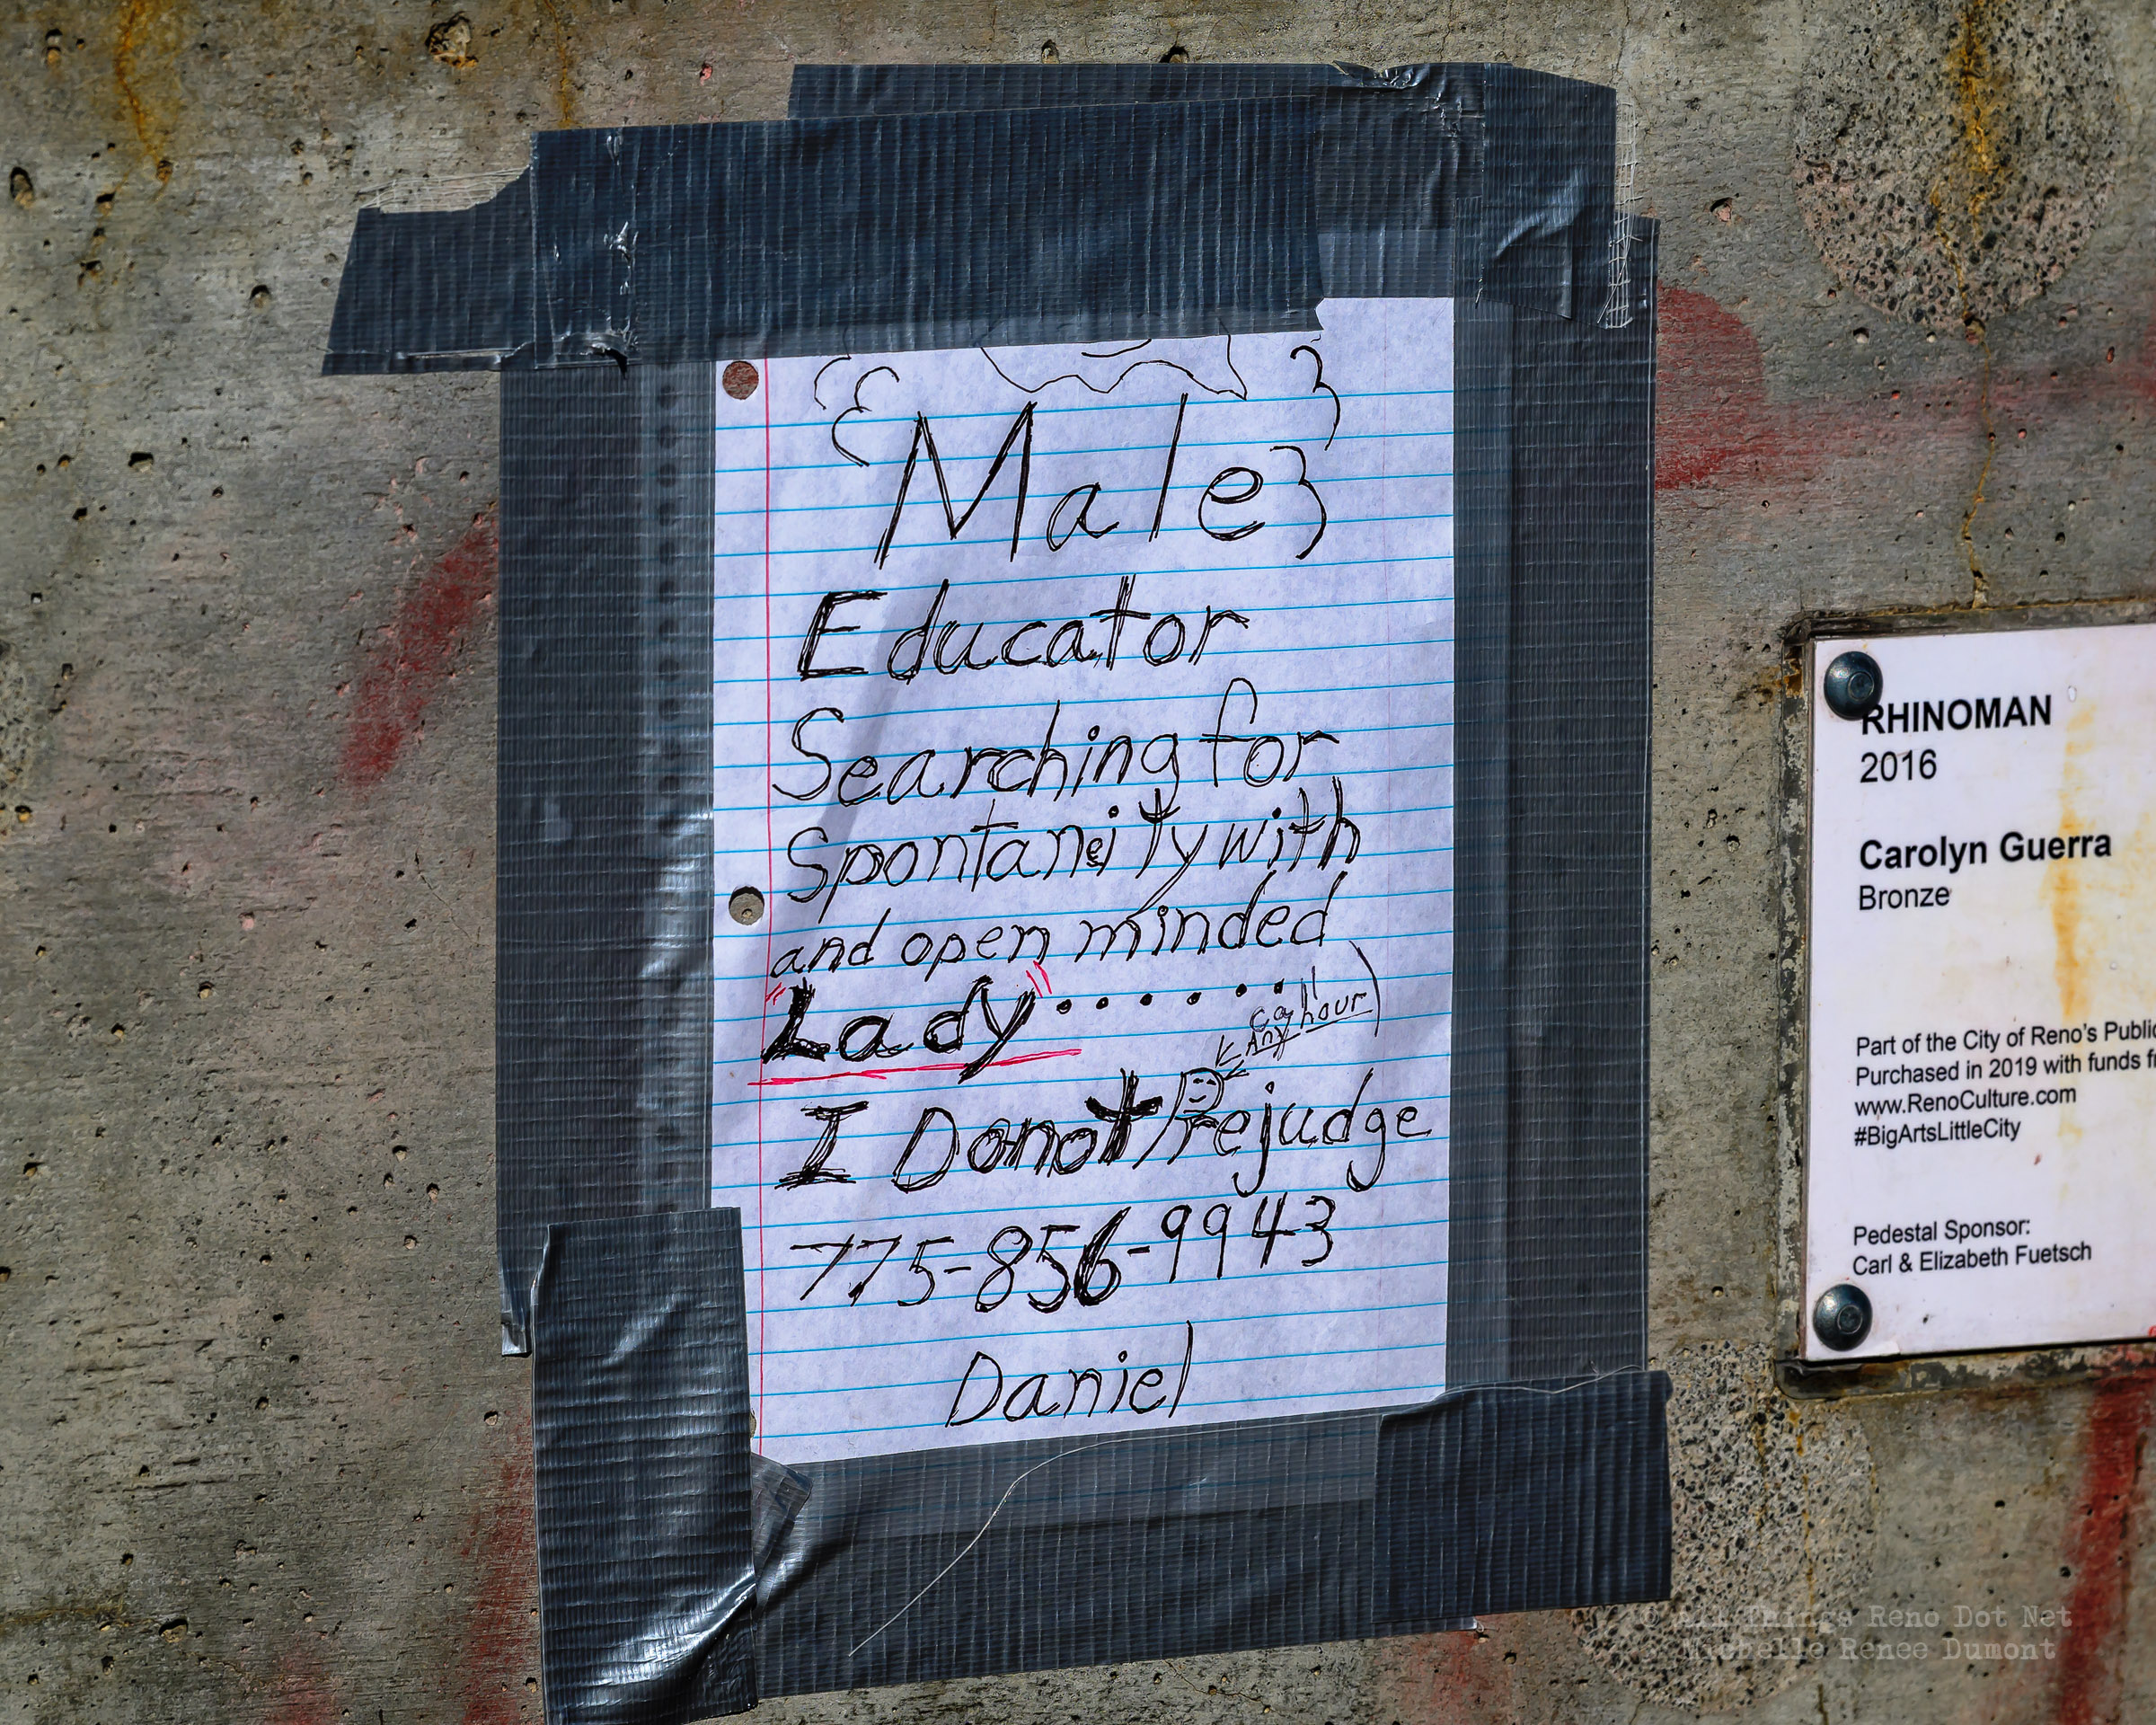 Male
Educator
Searching for
Spontaneity with
and open minded
"Lady".......
Any hour)
I Donot Prejudge
775-856-9943
Daniel
RHINOMAN
2016
Carolyn Guerra
Bronze
Part of the City of Reno's Public
Purchased in 2019 with funds
www.RenoCulture.com
#BigArtsLittleCity
Pedestal Sponsor:
Carl & Elizabeth Fuetsch
© All Things Reno Dot Net
Michelle Renee Dumont